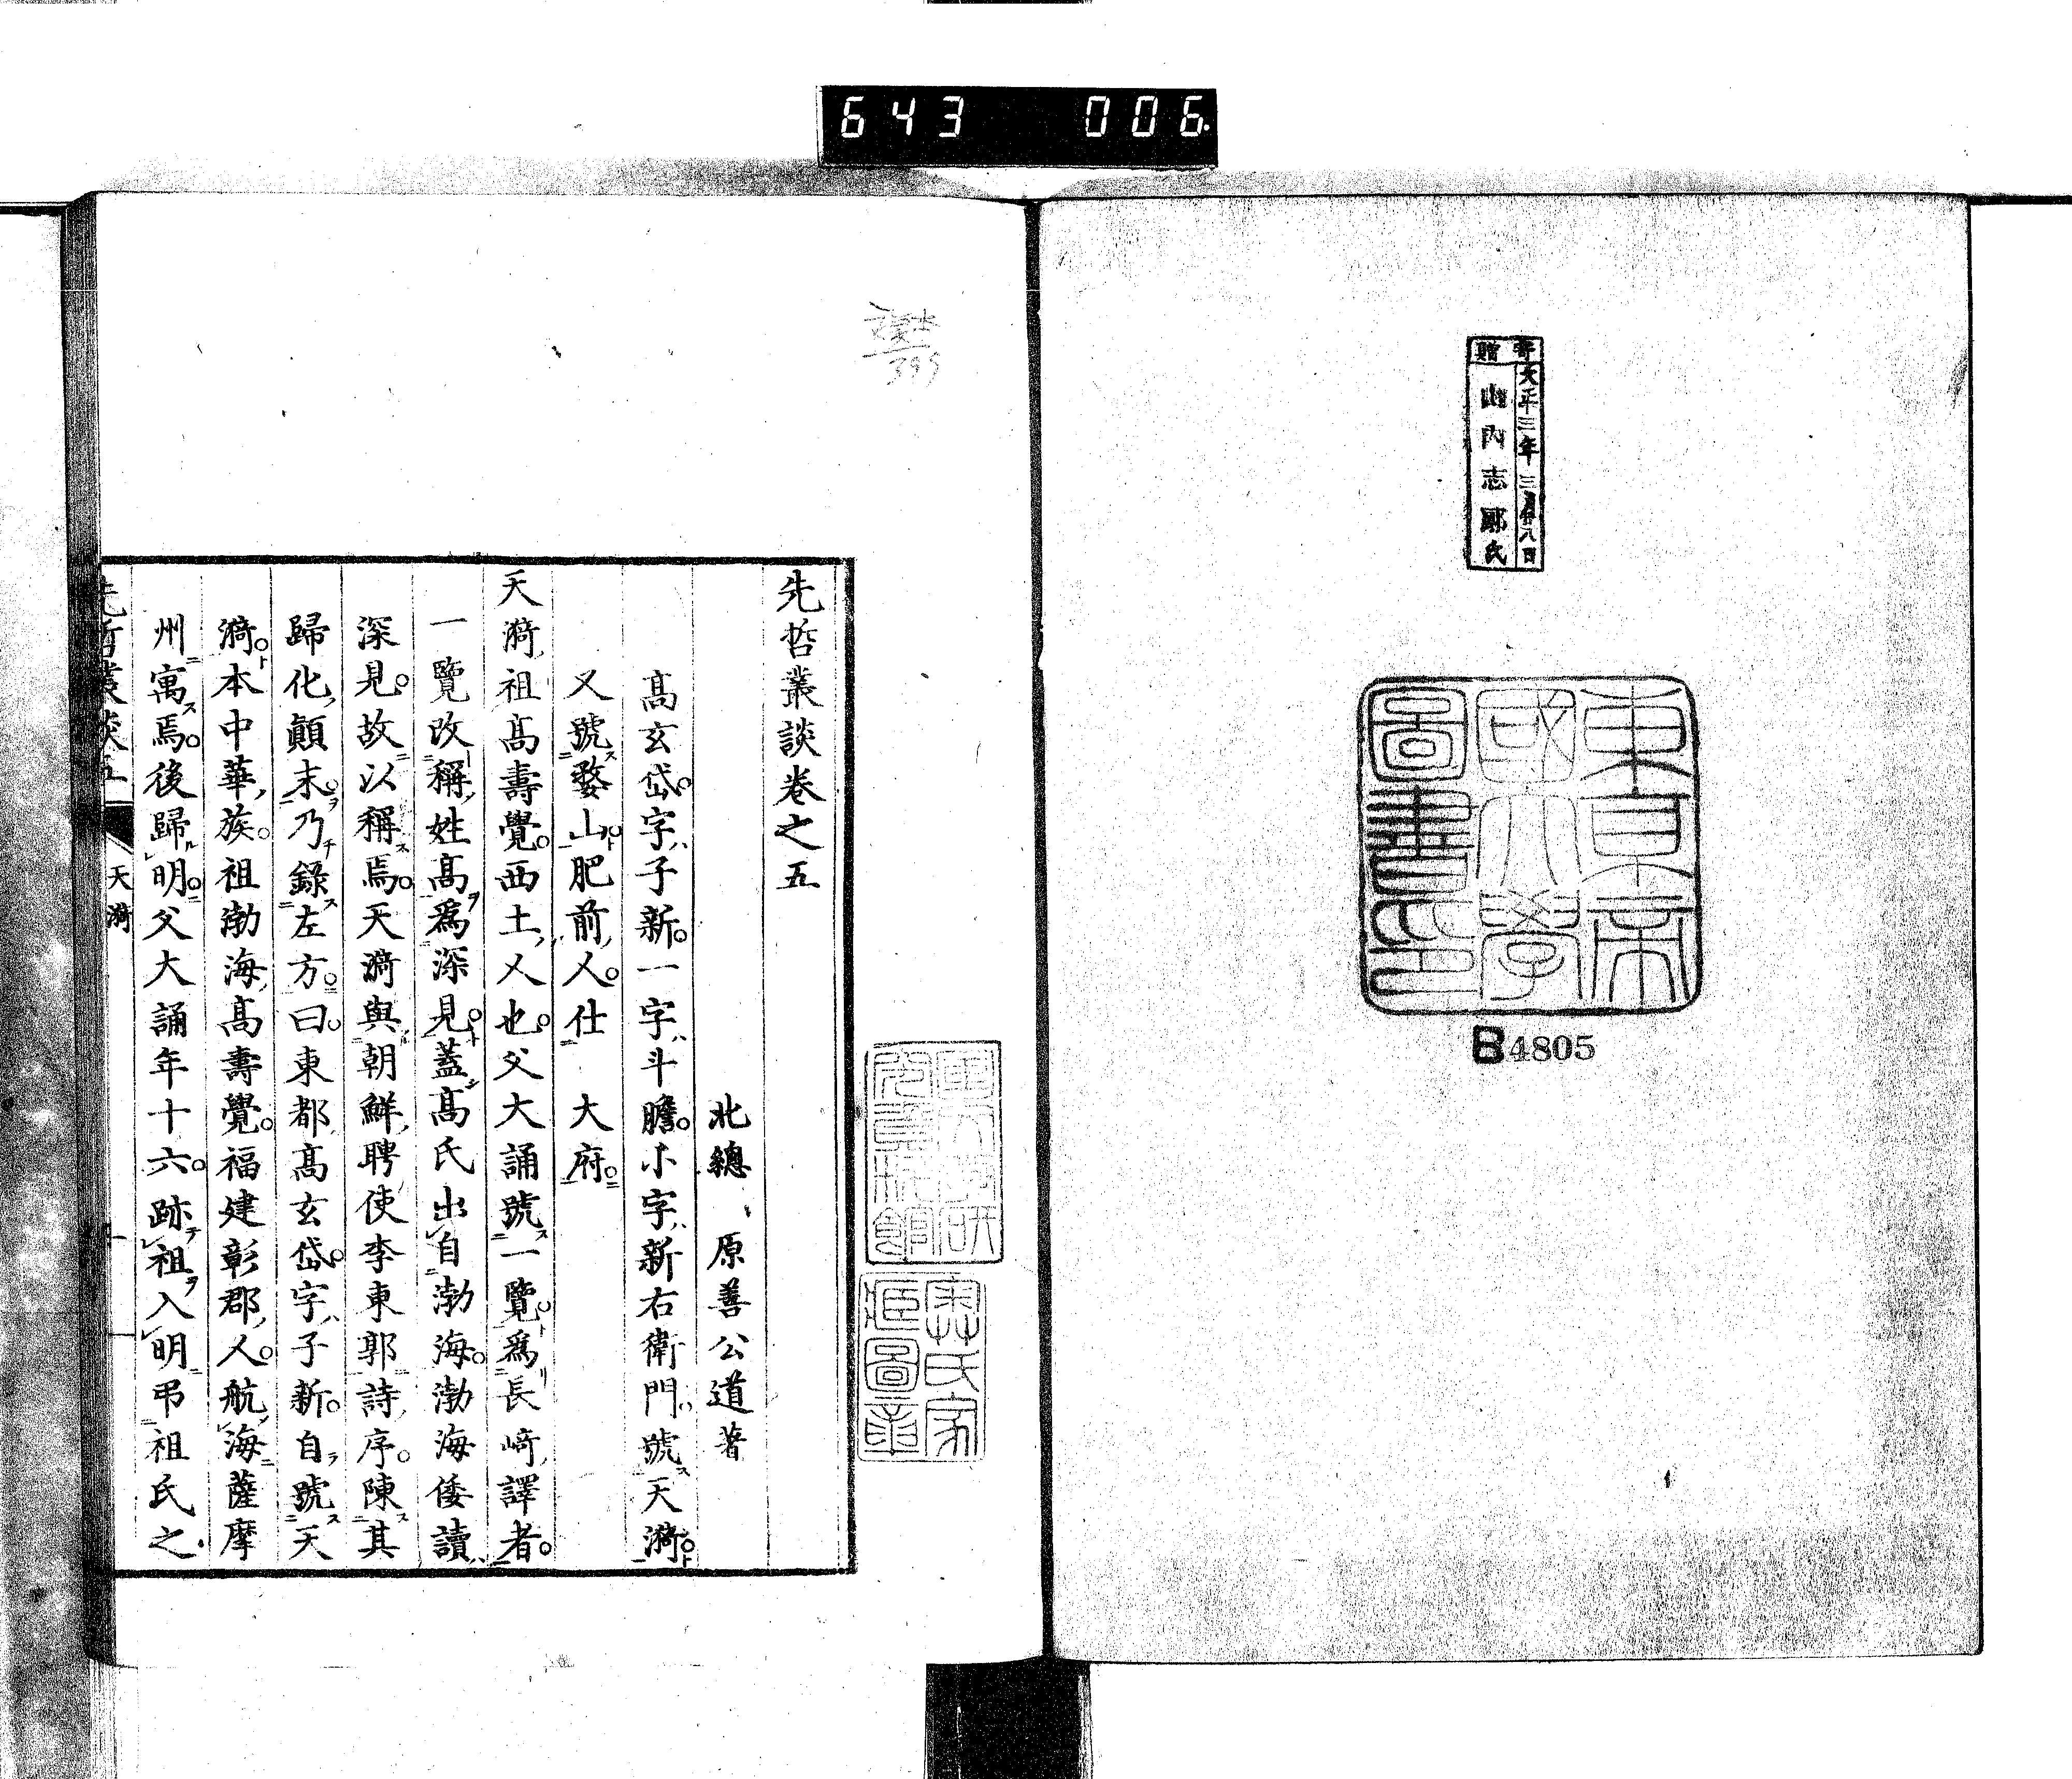 643 006
寄贈
大正三年三月廿八日
山内志郎氏
東京帝
國大學
圖書之印
B4805
先哲叢談卷之五
北總 原善公道著
高玄岱。字ハ子新。一字ハ斗膽。小字ハ新右衛門。號ス天漪ト。
又號ス婺山ト。肥前ノ人。仕 大府ニ。
天漪祖高壽覺。西土ノ人也。父大誦號ス一覽ト。爲長崎譯者。
一覽改稱姓高ヲ爲深見ト。蓋高氏出自渤海。渤海倭讀
深見。故以稱ス焉。天漪與朝鮮聘使李東郭詩序。陳ス其
歸化ノ顛末ヲ。乃チ錄ス左方ニ。曰。東都高玄岱。字ハ子新。自ラ號ス天
漪ト。本中華ノ族。祖渤海ノ高壽覺。福建彰郡ノ人。航海薩摩
州ニ寓ス焉。後歸ル明ニ。父大誦年十六。跡テ祖ヲ入明ニ弔祖氏之
先哲叢談五
天漪
一
奧氏家
藏圖書